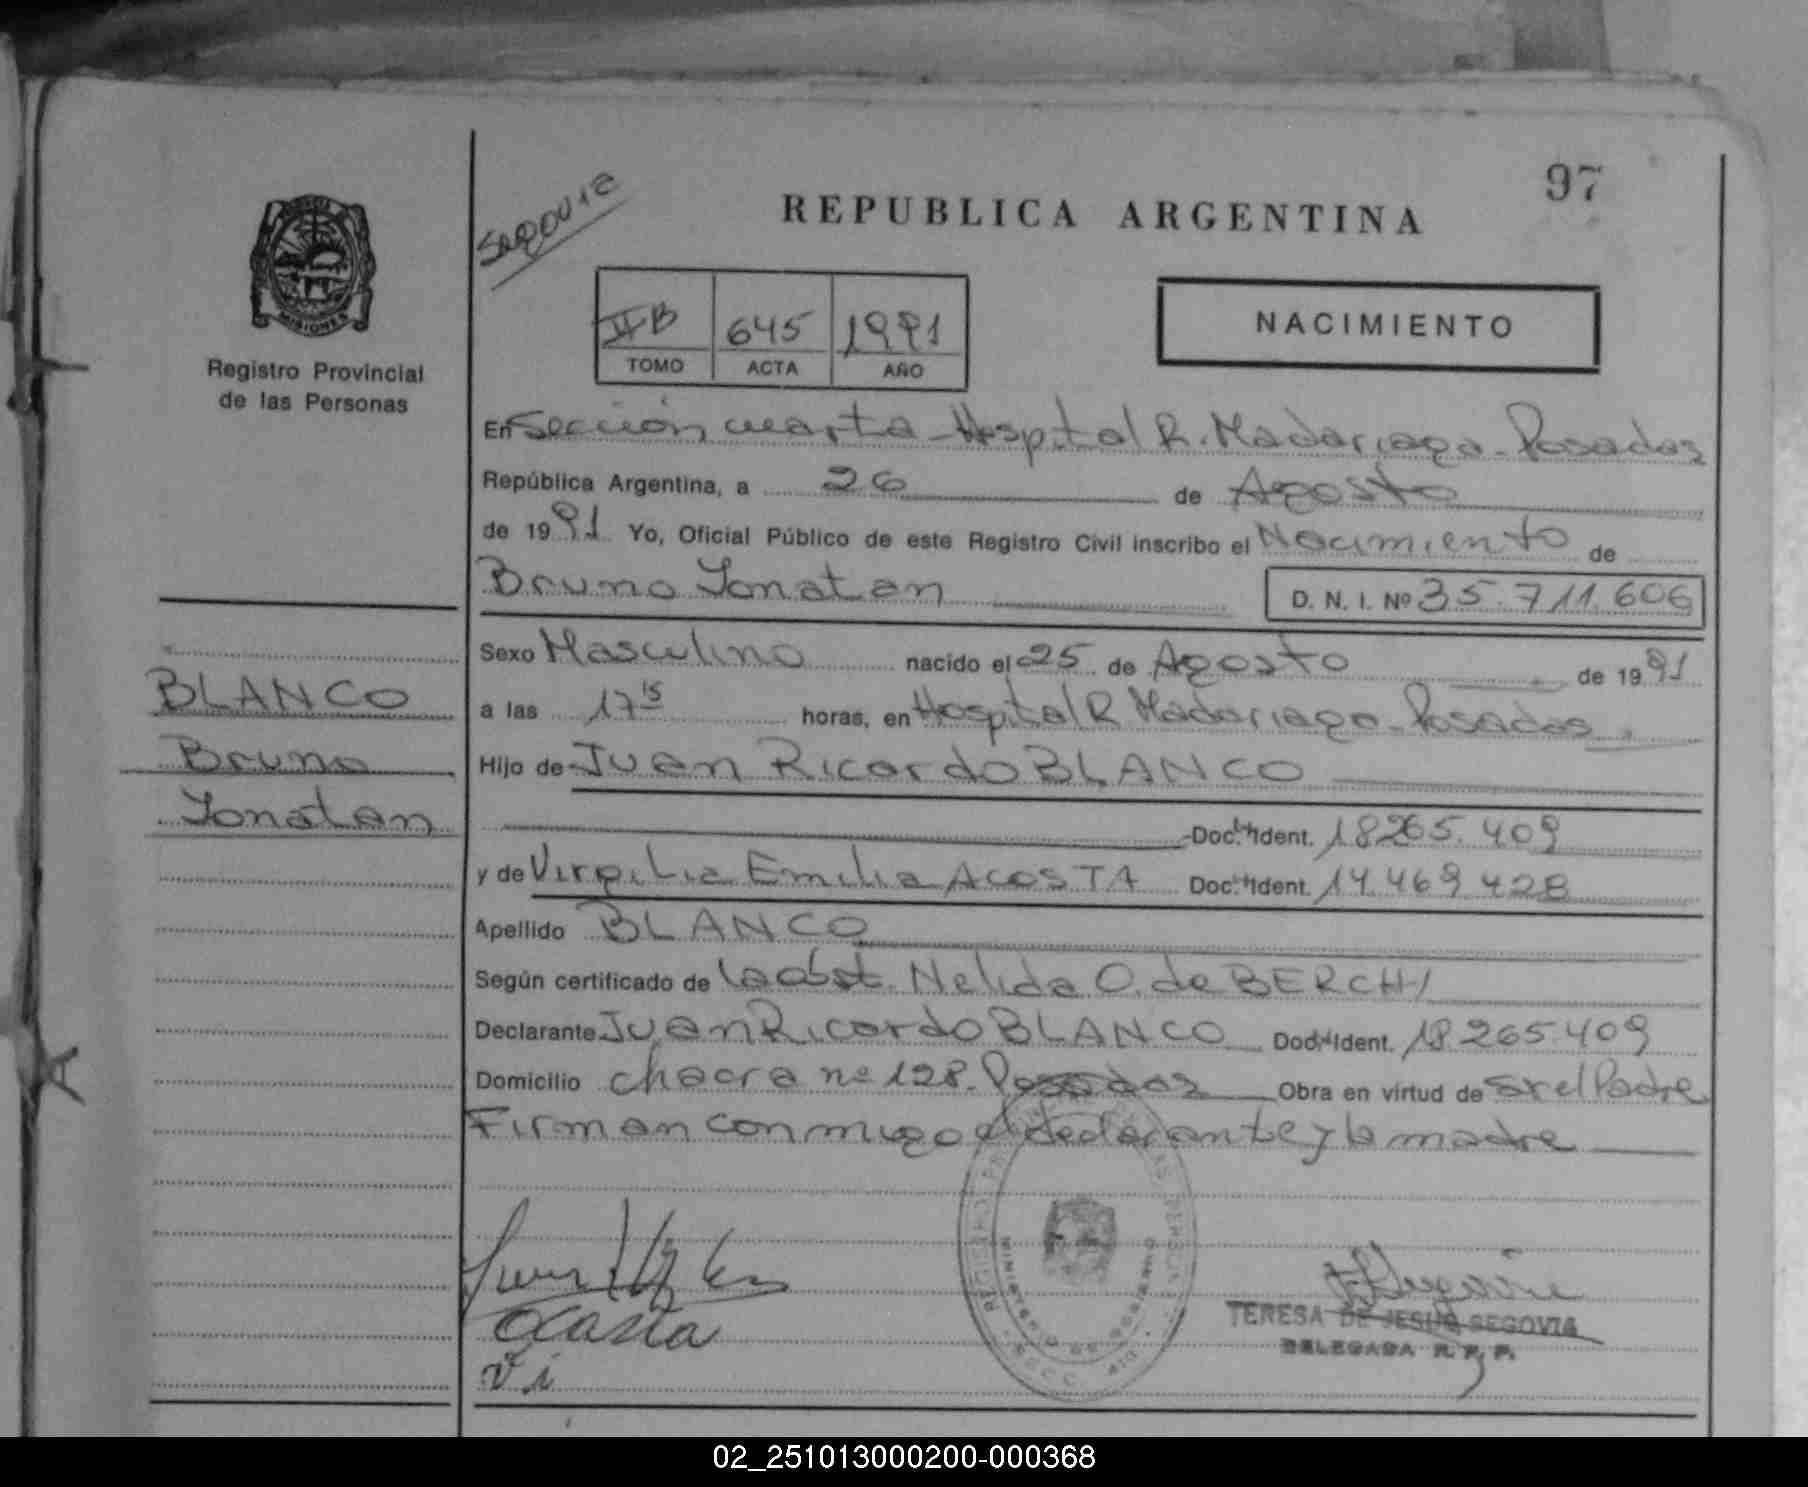 97
Segovia
REPUBLICA ARGENTINA
MISIONES
Registro Provincial
de las Personas
II B 645 1991
TOMO ACTA AÑO
NACIMIENTO
En Sección cuarta - Hospital R. Madariaga - Posadas
República Argentina, a 26 de Agosto
de 1991 Yo, Oficial Público de este Registro Civil inscribo el Nacimiento de
Bruno Jonatan D. N. I. Nº 35.711.606
Sexo Masculino nacido el 25 de Agosto de 1991
a las 17 15 horas, en Hospital R Madariaga - Posadas
Hijo de Juan Ricardo BLANCO
Doc. Ident. 18265.409
y de Virgilia Emilia ACOSTA Doc. Ident. 14.469.428
Apellido BLANCO
Según certificado de la obst. Nelida O. de BERCHI
Declarante Juan Ricardo BLANCO Doc. Ident. 18265.409
Domicilio chacra nº 128. Posadas Obra en virtud de ser el Padre
Firman conmigo el declarante y la madre
BLANCO
Bruno
Jonatan
Acosta
TERESA DE JESUS SEGOVIA
DELEGADA R. P. P.
02_251013000200-000368